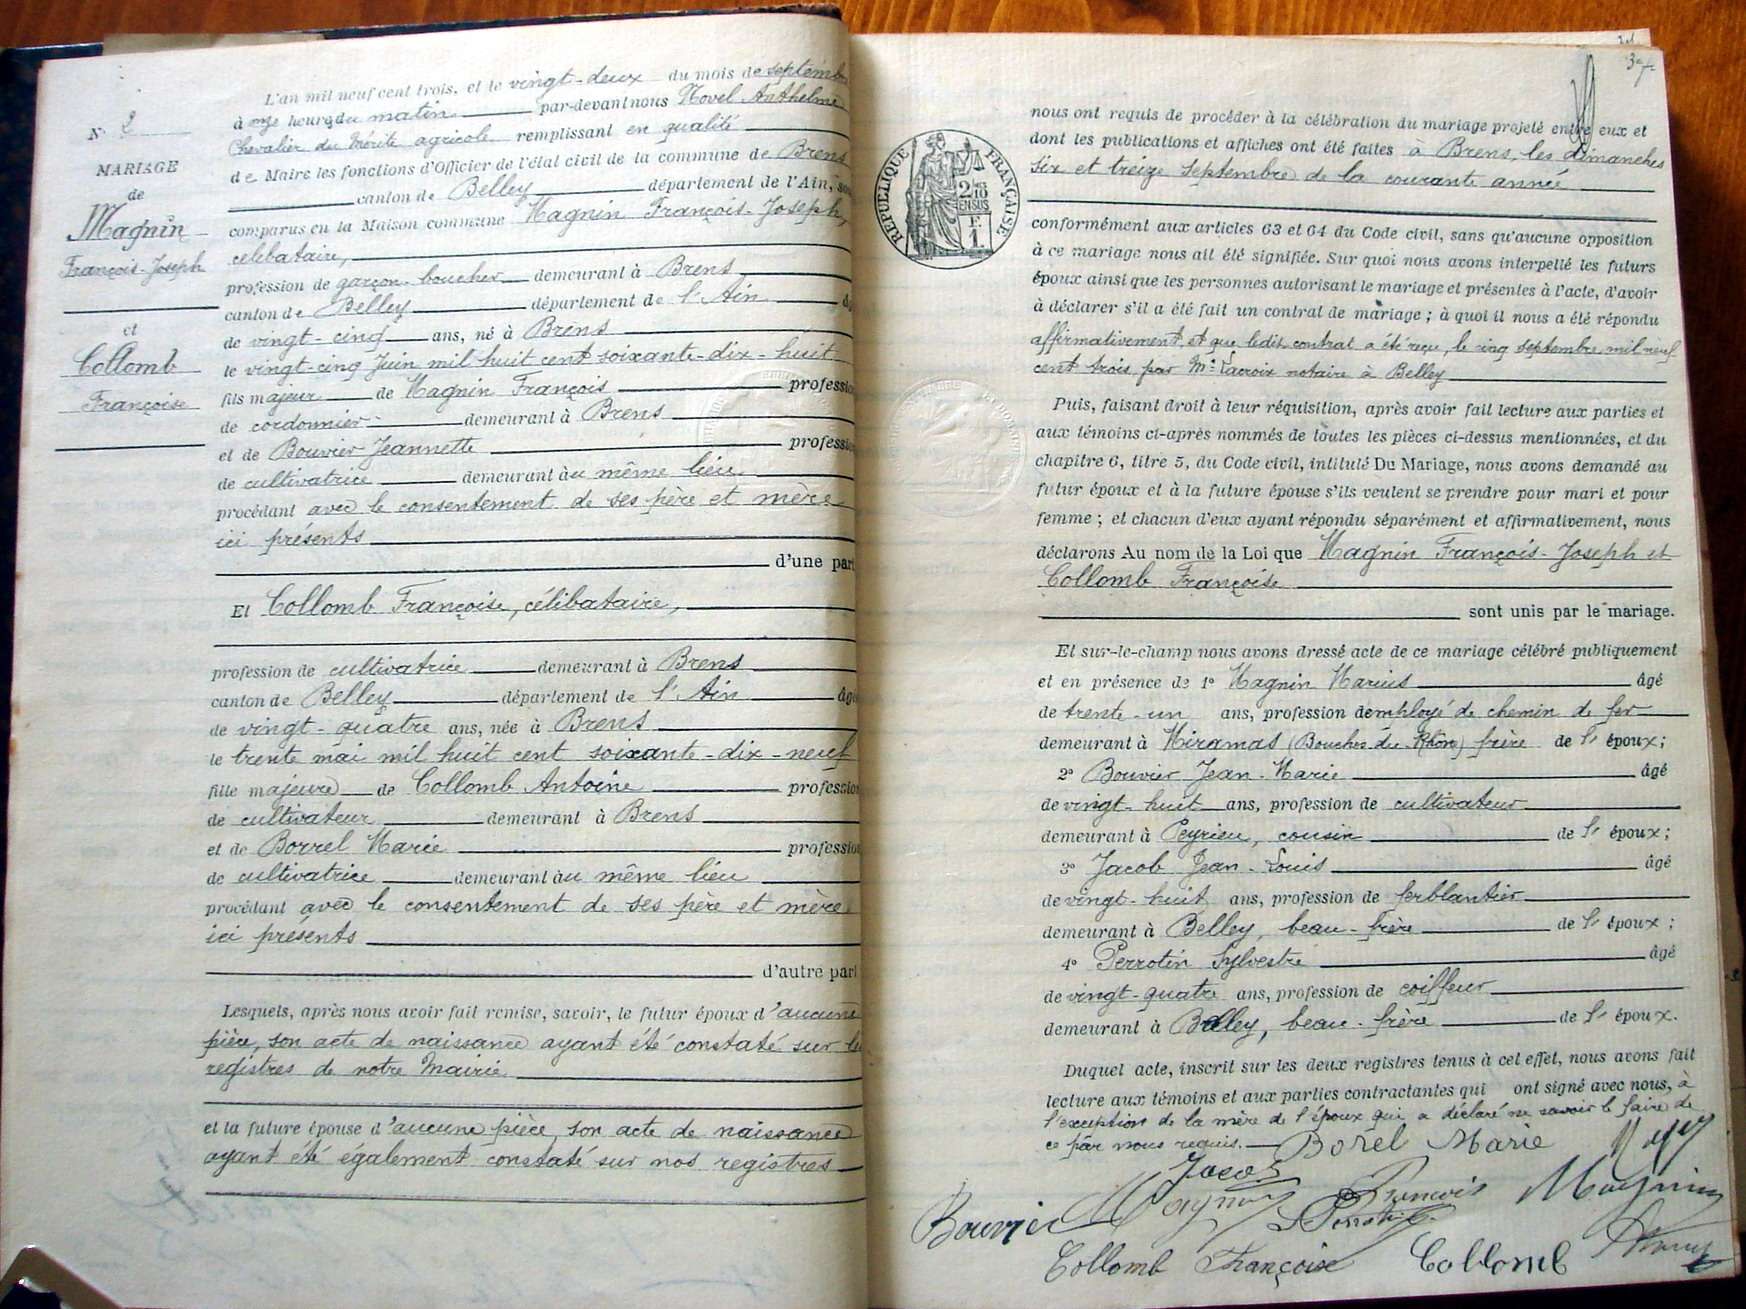 N° 2
MARIAGE
de
Magnin
François-Joseph
et
Collomb
Françoise
L'an mil neuf cent trois, et le vingt-deux du mois de septemb
à onze heures du matin par-devant nous Novel Anthelme
Chevalier du Mérite agricole remplissant en qualité
de Maire les fonctions d'Officier de l'état civil de la commune de Brens
canton de Belley département de l'Ain, son
comparus en la Maison commune Magnin François-Joseph,
célébataire,
profession de garçon boucher demeurant à Brens
canton de Belley département de l'Ain âg
de vingt-cinq ans, né à Brens
le vingt-cinq Juin mil huit cent soixante-dix-huit
fils majeur de Magnin François profession
de cordonnier demeurant à Brens
et de Bouvier Jeannette profession
de cultivatrice demeurant àu même lieu
procédant avec le consentement de ses père et mère
ici présents
d'une part
Et Collomb Françoise, célibataire,
profession de cultivatrice demeurant à Brens
canton de Belley département de l'Ain âgé
de vingt-quatre ans, née à Brens
le trente mai mil huit cent soixante-dix-neuf
fille majeure de Collomb Antoine profession
de cultivateur demeurant à Brens
et de Borrel Marie profession
de cultivatrice demeurant àu même lieu
procédant avec le consentement de ses père et mère
ici présents
d'autre part
Lesquels, après nous avoir fait remise, savoir, le futur époux d'aucune
pièce, son acte de naissance ayant été constaté sur les
registres de notre Mairie
et la future épouse d'aucune pièce, son acte de naissance
ayant été également constaté sur nos registres
RÉPUBLIQUE FRANÇAISE
EN SUS
F. 1
nous ont requis de procéder à la célébration du mariage projeté entre eux et
dont les publications et affiches ont été faites à Brens, les dimanches
six et treize septembre de la courante année
conformément aux articles 63 et 64 du Code civil, sans qu'aucune opposition
à ce mariage nous ait été signifiée. Sur quoi nous avons interpellé les futurs
époux ainsi que les personnes autorisant le mariage et présentes à l'acte, d'avoir
à déclarer s'il a été fait un contrat de mariage ; à quoi il nous a été répondu
affirmativement et que ledit contrat a été reçu, le cinq septembre mil neuf
cent trois par Me Lacroix notaire à Belley
Puis, faisant droit à leur réquisition, après avoir fait lecture aux parties et
aux témoins ci-après nommés de toutes les pièces ci-dessus mentionnées, et du
chapitre 6, titre 5, du Code civil, intitulé Du Mariage, nous avons demandé au
futur époux et à la future épouse s'ils veulent se prendre pour mari et pour
femme ; et chacun d'eux ayant répondu séparément et affirmativement, nous
déclarons Au nom de la Loi que Magnin François-Joseph et
Collomb Françoise
sont unis par le mariage.
Et sur-le-champ nous avons dressé acte de ce mariage célébré publiquement
et en présence de 1° Magnin Marius âgé
de trente-un ans, profession d'employé de chemin de fer
demeurant à Miramas (Bouches du Rhône) frère de l' époux ;
2° Bouvier Jean-Marie âgé
de vingt-huit ans, profession de cultivateur
demeurant à Peyrieu, cousin de l' époux ;
3° Jacob Jean-Louis âgé
de vingt-huit ans, profession de ferblantier
demeurant à Belley, beau-frère de l' époux ;
4° Perrotin Sylvestre âgé
de vingt-quatre ans, profession de coiffeur
demeurant à Belley, beau-frère de l' époux.
Duquel acte, inscrit sur les deux registres tenus à cet effet, nous avons fait
lecture aux témoins et aux parties contractantes qui ont signé avec nous, à
l'exception de la mère de l'époux qui a déclaré ne savoir le faire de
ce par nous requis. Borel Marie
Jacob
Bouvier Magnin François Magnin
Collomb Françoise Collomb